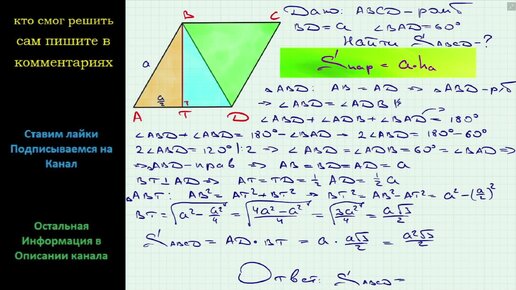 кто смог решить
сам пишите в
комментариях
Ставим лайки
Подписываемся на
Канал
Остальная
Информация в
Описании канала
B
C
a
a/2
A
T
D
Дано: ABCD – ромб
BD = a ∠BAD = 60°
Найти S_ABCD = ?
S_пар = a·h_a
△ABD: AB = AD ⇒ △ABD – р/б
⇒ ∠ABD = ∠ADB
∠ABD + ∠ADB + ∠BAD = 180°
∠ABD + ∠ADB = 180° – ∠BAD → 2∠ABD = 180° – 60°
2∠ABD = 120° |:2 → ∠ABD = ∠ADB = 60° = ∠BAD ⇒
⇒ △ABD – прав ⇒ AB = BD = AD = a
BT ⊥ AD ⇒ AT = TD = 1/2 AD = 1/2 a
△ABT: AB² = AT² + BT² ⇒ BT² = AB² – AT² = a² – (a/2)²
BT = √(a² – a²/4) = √((4a² – a²)/4) = √(3a²/4) = a√3/2
S_ABCD = AD · BT = a · a√3/2 = a²√3/2
Ответ: S_ABCD =